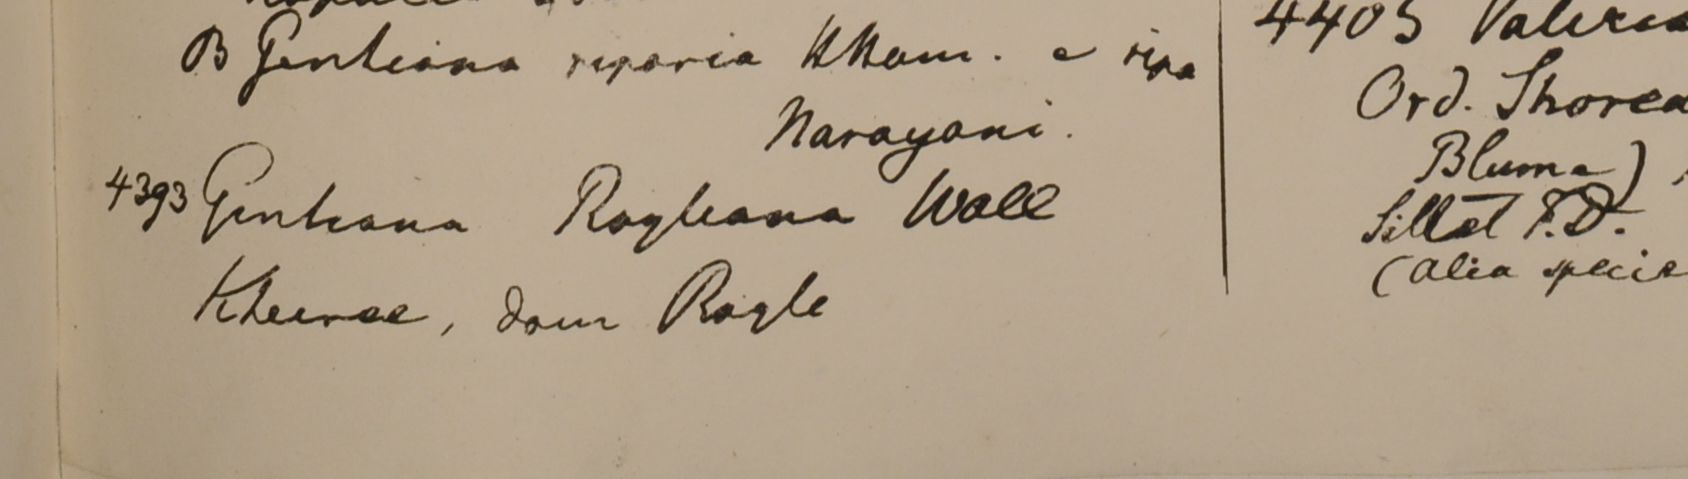 B Gentiana riparia HHam. e ripa
Narayani.
4393 Gentiana Rogleana Wall
Kheeree, dom Rogle
4405 Valeria
Ord. Shorea
Bluma)
Sillet F.D.
(alia specie